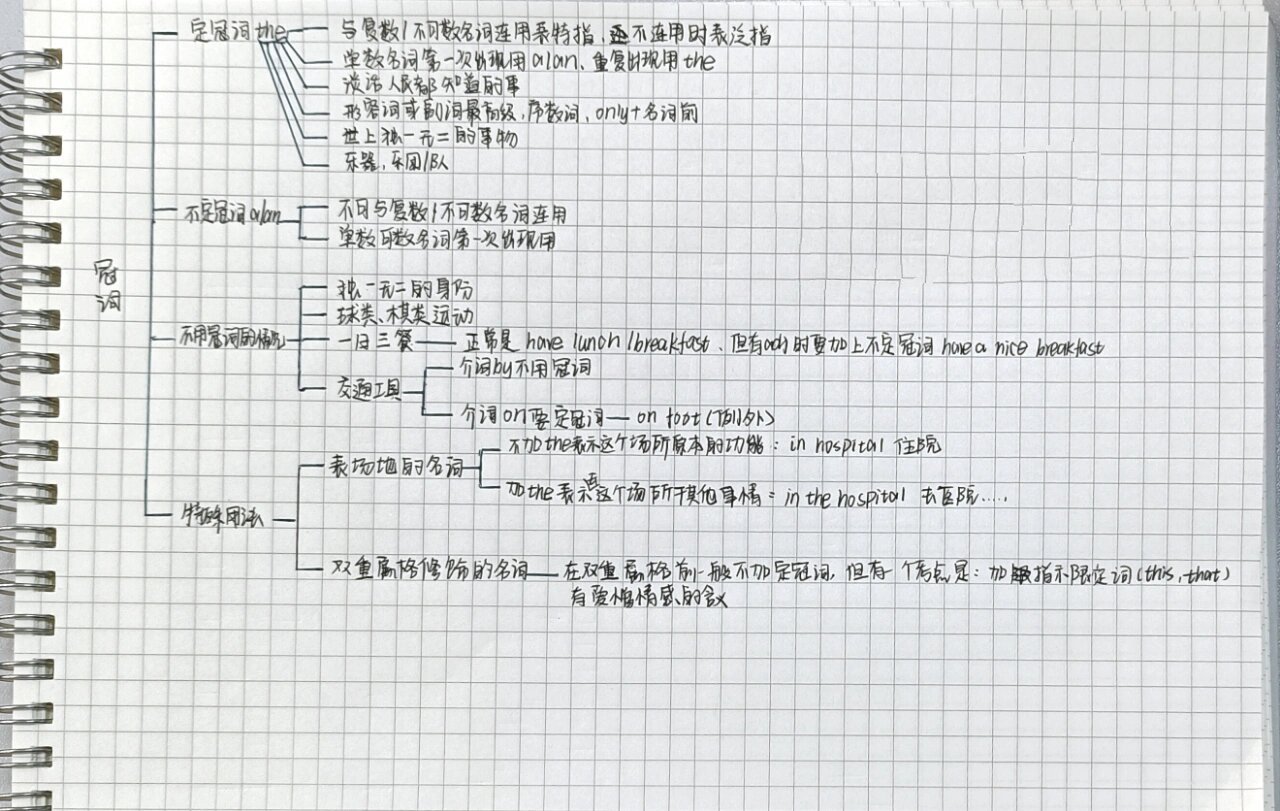 定冠词 the
与复数/不可数名词连用表特指、不连用时表泛指
单数名词第一次出现用a/an、重复出现用the
谈话人民都知道的事
形容词或副词最高级,序数词、only+名词前
世上独一无二的事物
乐器,乐团/队
不定冠词a/an
不可与复数/不可数名词连用
单数可数名词第一次出现用
冠词
不用冠词的情况
独一无二的身份
球类、棋类运动
一日三餐 正常是 have lunch/breakfast、但有adj时要加上不定冠词 have a nice breakfast
交通工具
介词by不用冠词
介词on要定冠词 on foot(例外)
特殊用法
表场地的名词
不加the表示这个场所原本的功能:in hospital 住院
加the表示这个场所干其他事情:in the hospital 去医院.....
双重属格修饰的名词 在双重属格前一般不加定冠词,但有一个考点是:加指示限定词(this,that)
有爱憎情感的含义